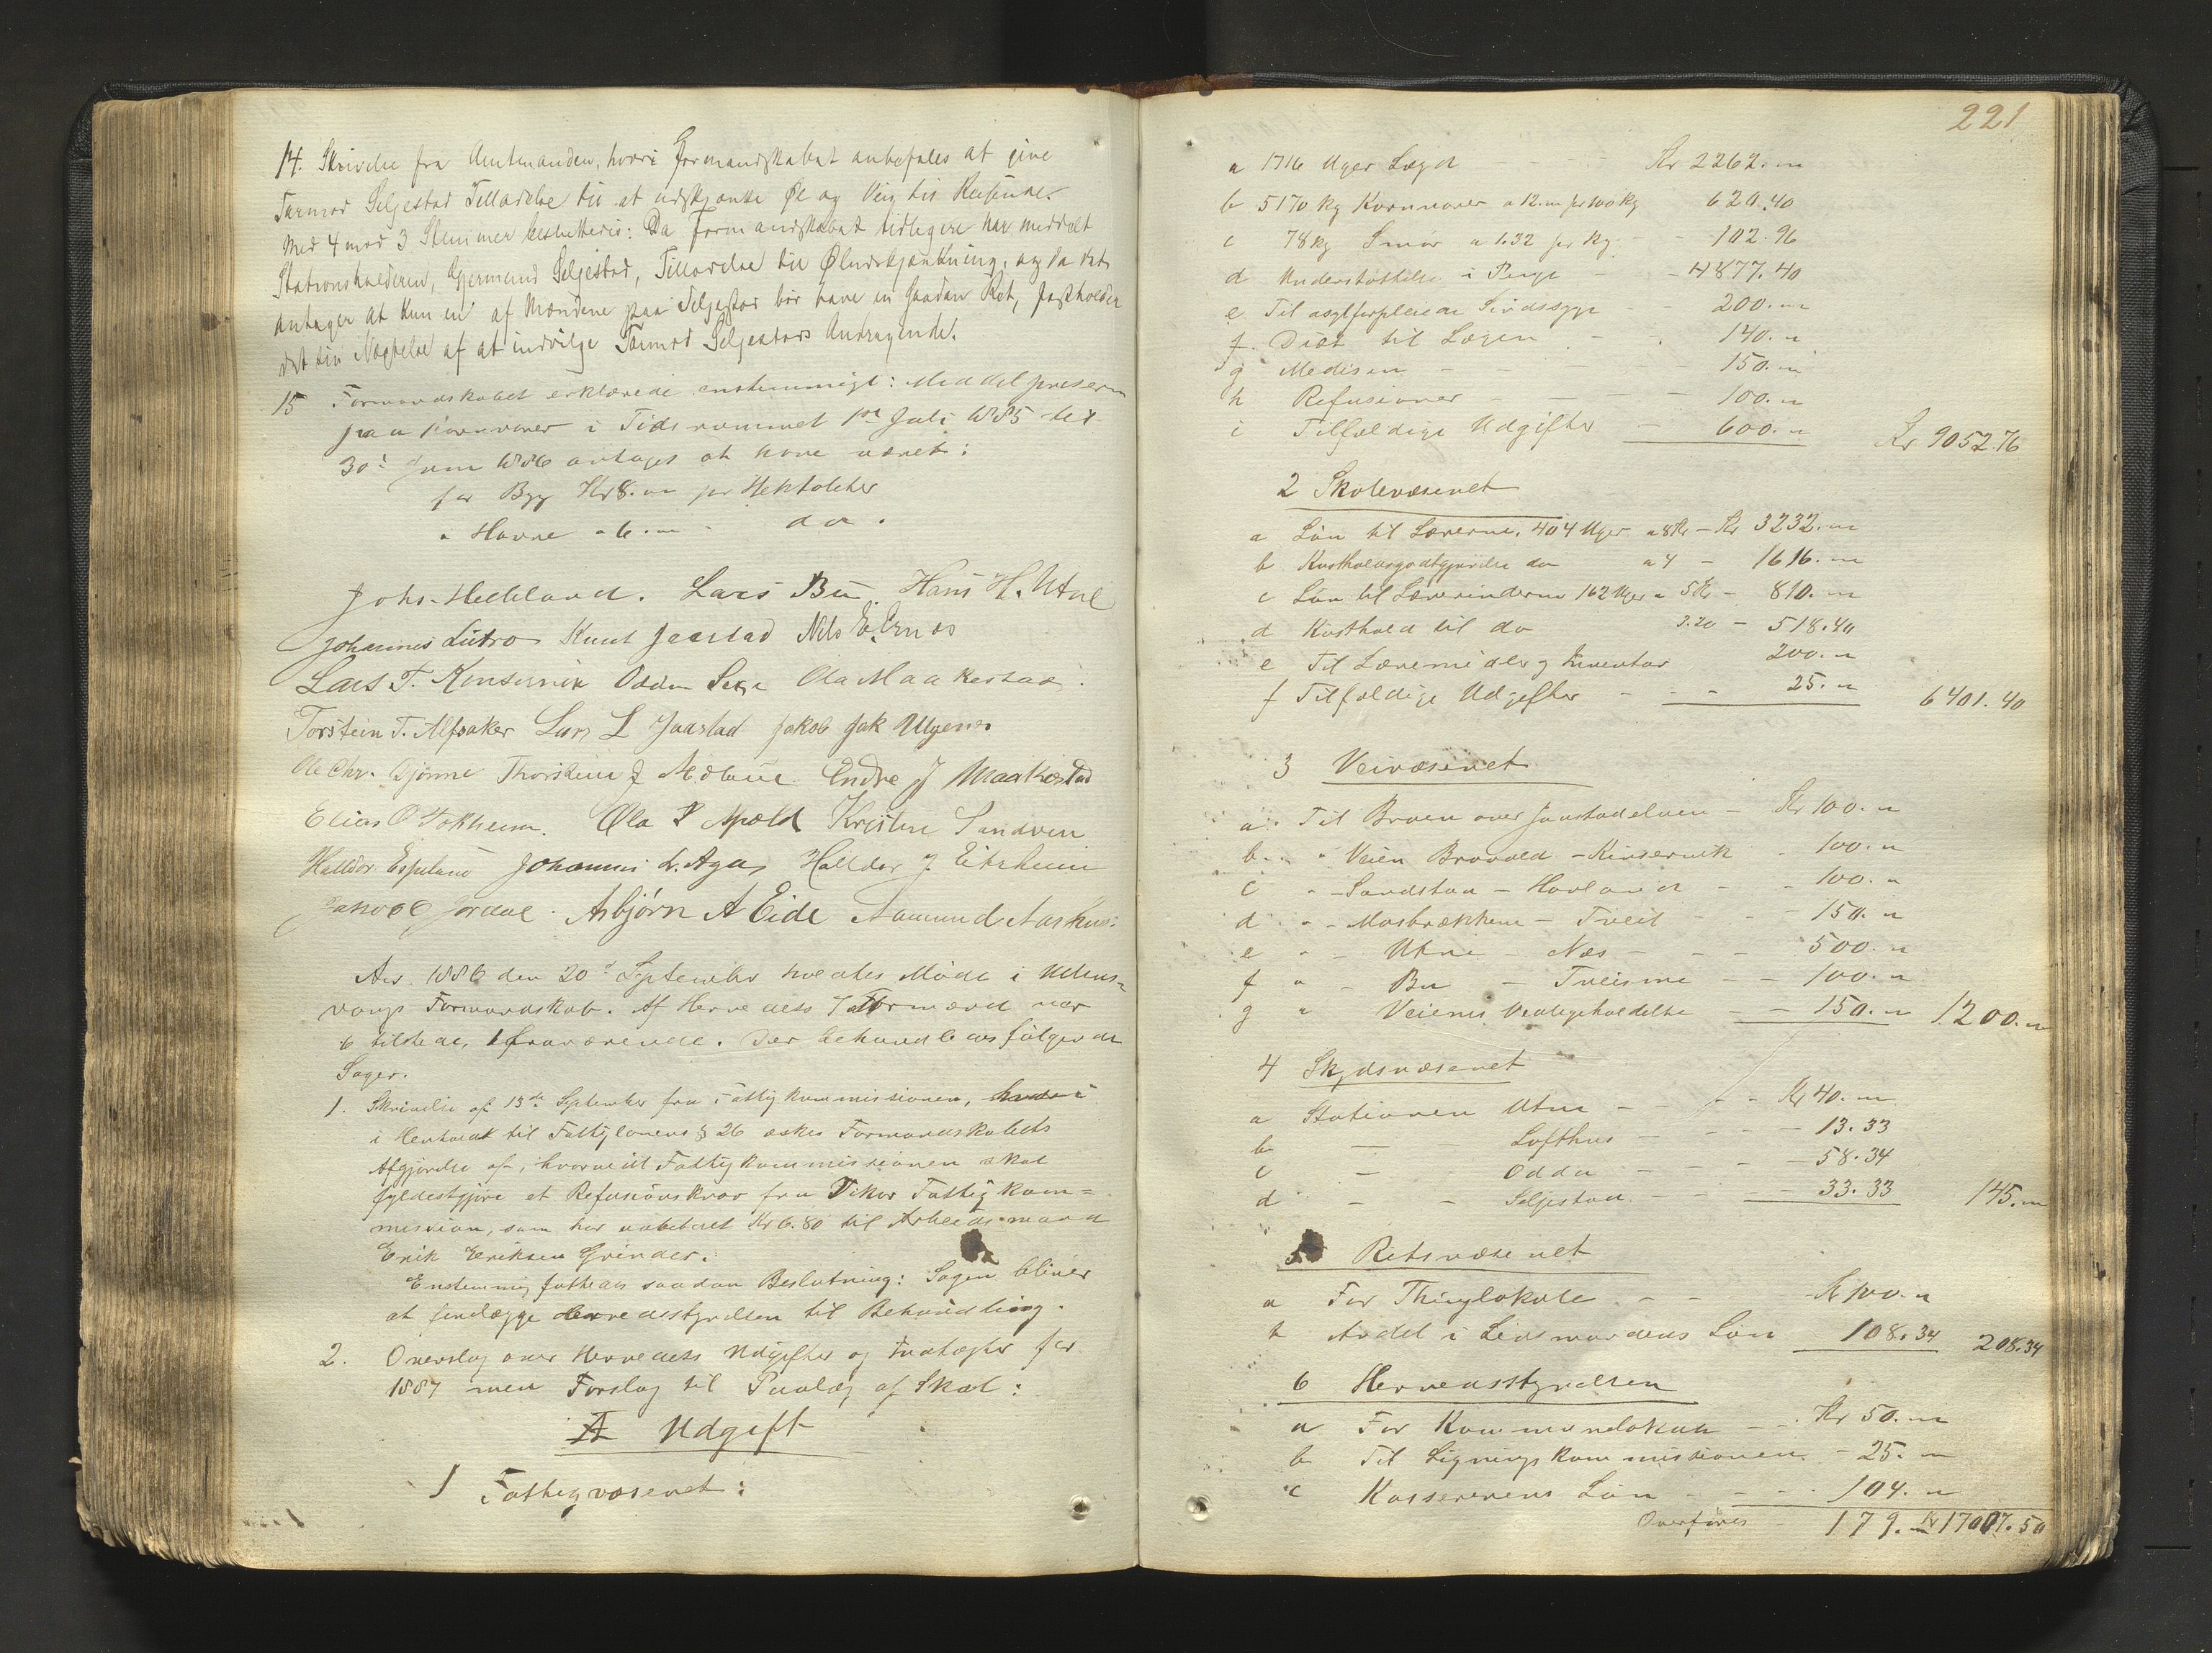 14. Skrivelse fra Amtmanden, hvori Formandskabet anbefales at give
Tarmod Seljestad Tilladelse til at udskjænke Øl og Vin til Reisende.
Med 4 mod 3 Stemmer besluttedes: Da Formandskabet tidligere har meddelt
Stationsholderen, Gjermund Seljestad, Tilladelse til Øludskjænkning, og da det
antager at kun en af Mændene paa Seljestad bør have en saadan Ret, fastholder
det sin Nægtelse af at indvilge Tarmod Seljestads Andragende.
15 Formandskabet erklærede enstemmigt: Middelprisen
paa Kornvarer i Tidsrommet 1ste Juli 1885 til
30te Juni 1886 antages at have været:
for Byg Kr 8.00 pr Hektoliter
" Havre " 6.00 " do.
Johs. Helleland. Lars Bu. Hans H. Utne
Johannes Lutro Knut Jaastad Nils E. Ernes
Lars T. Kinservik Odden Sexe Ola Maakestad.
Torstein T. Alfsaker Lars L Jaastad Jakob Jak Ulgenes
Ole Chr. Bjønne Thorstein J Mæland Endre J Maakestad
Elias O Tokheim. Ola P Apold Kristen Sandven
Halldor Espeland Johannes L. Aga Halldor J. Eitrheim
Jakob C Jordal. Asbjørn A Eide Aamund Aarhus.
Aar 1886 den 20de September holdtes Møde i Ullens=
vangs Formandskab. Af Herredets 7 Formænd var
6 tilstede, 1 fraværende. Der behandledes følgende
Sager.
1. Skrivelse af 15de September fra Fattigkommissionen, hvori
i Henhold til Fattiglovens § 26 æskes Formandskabets
Afgjørelse af, hvorvidt Fattigkommissionen skal
fyldestgjøre et Refusionskrav fra Vikør Fattigkom=
mission, som har udbetalt Kr 6.80 til Arbeidsmand
Erik Eriksen Grinder.
Enstemmig fattedes saadan Beslutning: Sagen bliver
at forelægge Herredsstyrelsen til Behandling.
2. Overslag over Herredets Udgifter og Indtægter for
1887 med Forslag til Paalæg af Skat:
A Udgift
1 Fattigvæsenet:
221
a 1716 Uger Lægd - - Kr 2262.00
b 5170 kg Kornvarer a 12.00 pr 100 kg 620.40
c 78 kg Smør a 1.32 pr kg - - 102.96
d Understøttelse i Penge - - 4877.40
e Til asylforpleiede Sindssyge - 200.00
f. Diæt til Lægen - . 140.00
g Medisin - - - - 150.00
h Refusioner - - - - 100.00
i Tilfældige Udgifter - 600.00 Kr 9052.76
2 Skolevæsenet
a Løn til Lærerne. 404 Uger a 8 Kr - Kr 3232.00
b Kostholdsgodtgjørelse do a 4 - 1616.00
c Løn til Lærerinderne 162 Uger a 5 Kr - 810.00
d Kosthold til do 3.20 - 518.40
e Til Læremidler og Inventar 200.00
f Tilfældige Udgifter - - - 25.00 6401.40
3 Veivæsenet
a. Til Broen over Jaastadelven - Kr 100.00
b. " " Veien Bravold - Kinservik - 100.00
c " - Sandstaa - Hovland - - 100.00
d " - Mosbrækkene - Tveit - - - 150.00
e " - Utne - Næs - - - 500.00
f " - Bu - Tveisme - - 100.00
g " Veienes Vedligeholdelse - - 150.00 1200.00
4 Skydsvæsenet
a Stationen Utne - - - - Kr 40.00
b - - Lofthus - - - - 13.33
c - Odda - - - - 58.34
d - - Seljestad - - - 33.33 145.00
5 Retsvæsenet
a For Thinglokale - - Kr 100.00
b Andel i Lensmandens Løn 108.34 208.34
6 Herredsstyrelsen
a For Kommunelokale - - Kr 50.00
b Til Ligningskommissionen - 25.00
c Kassererens Løn - - - 104.00
Overføres 179.00 Kr 17007.50